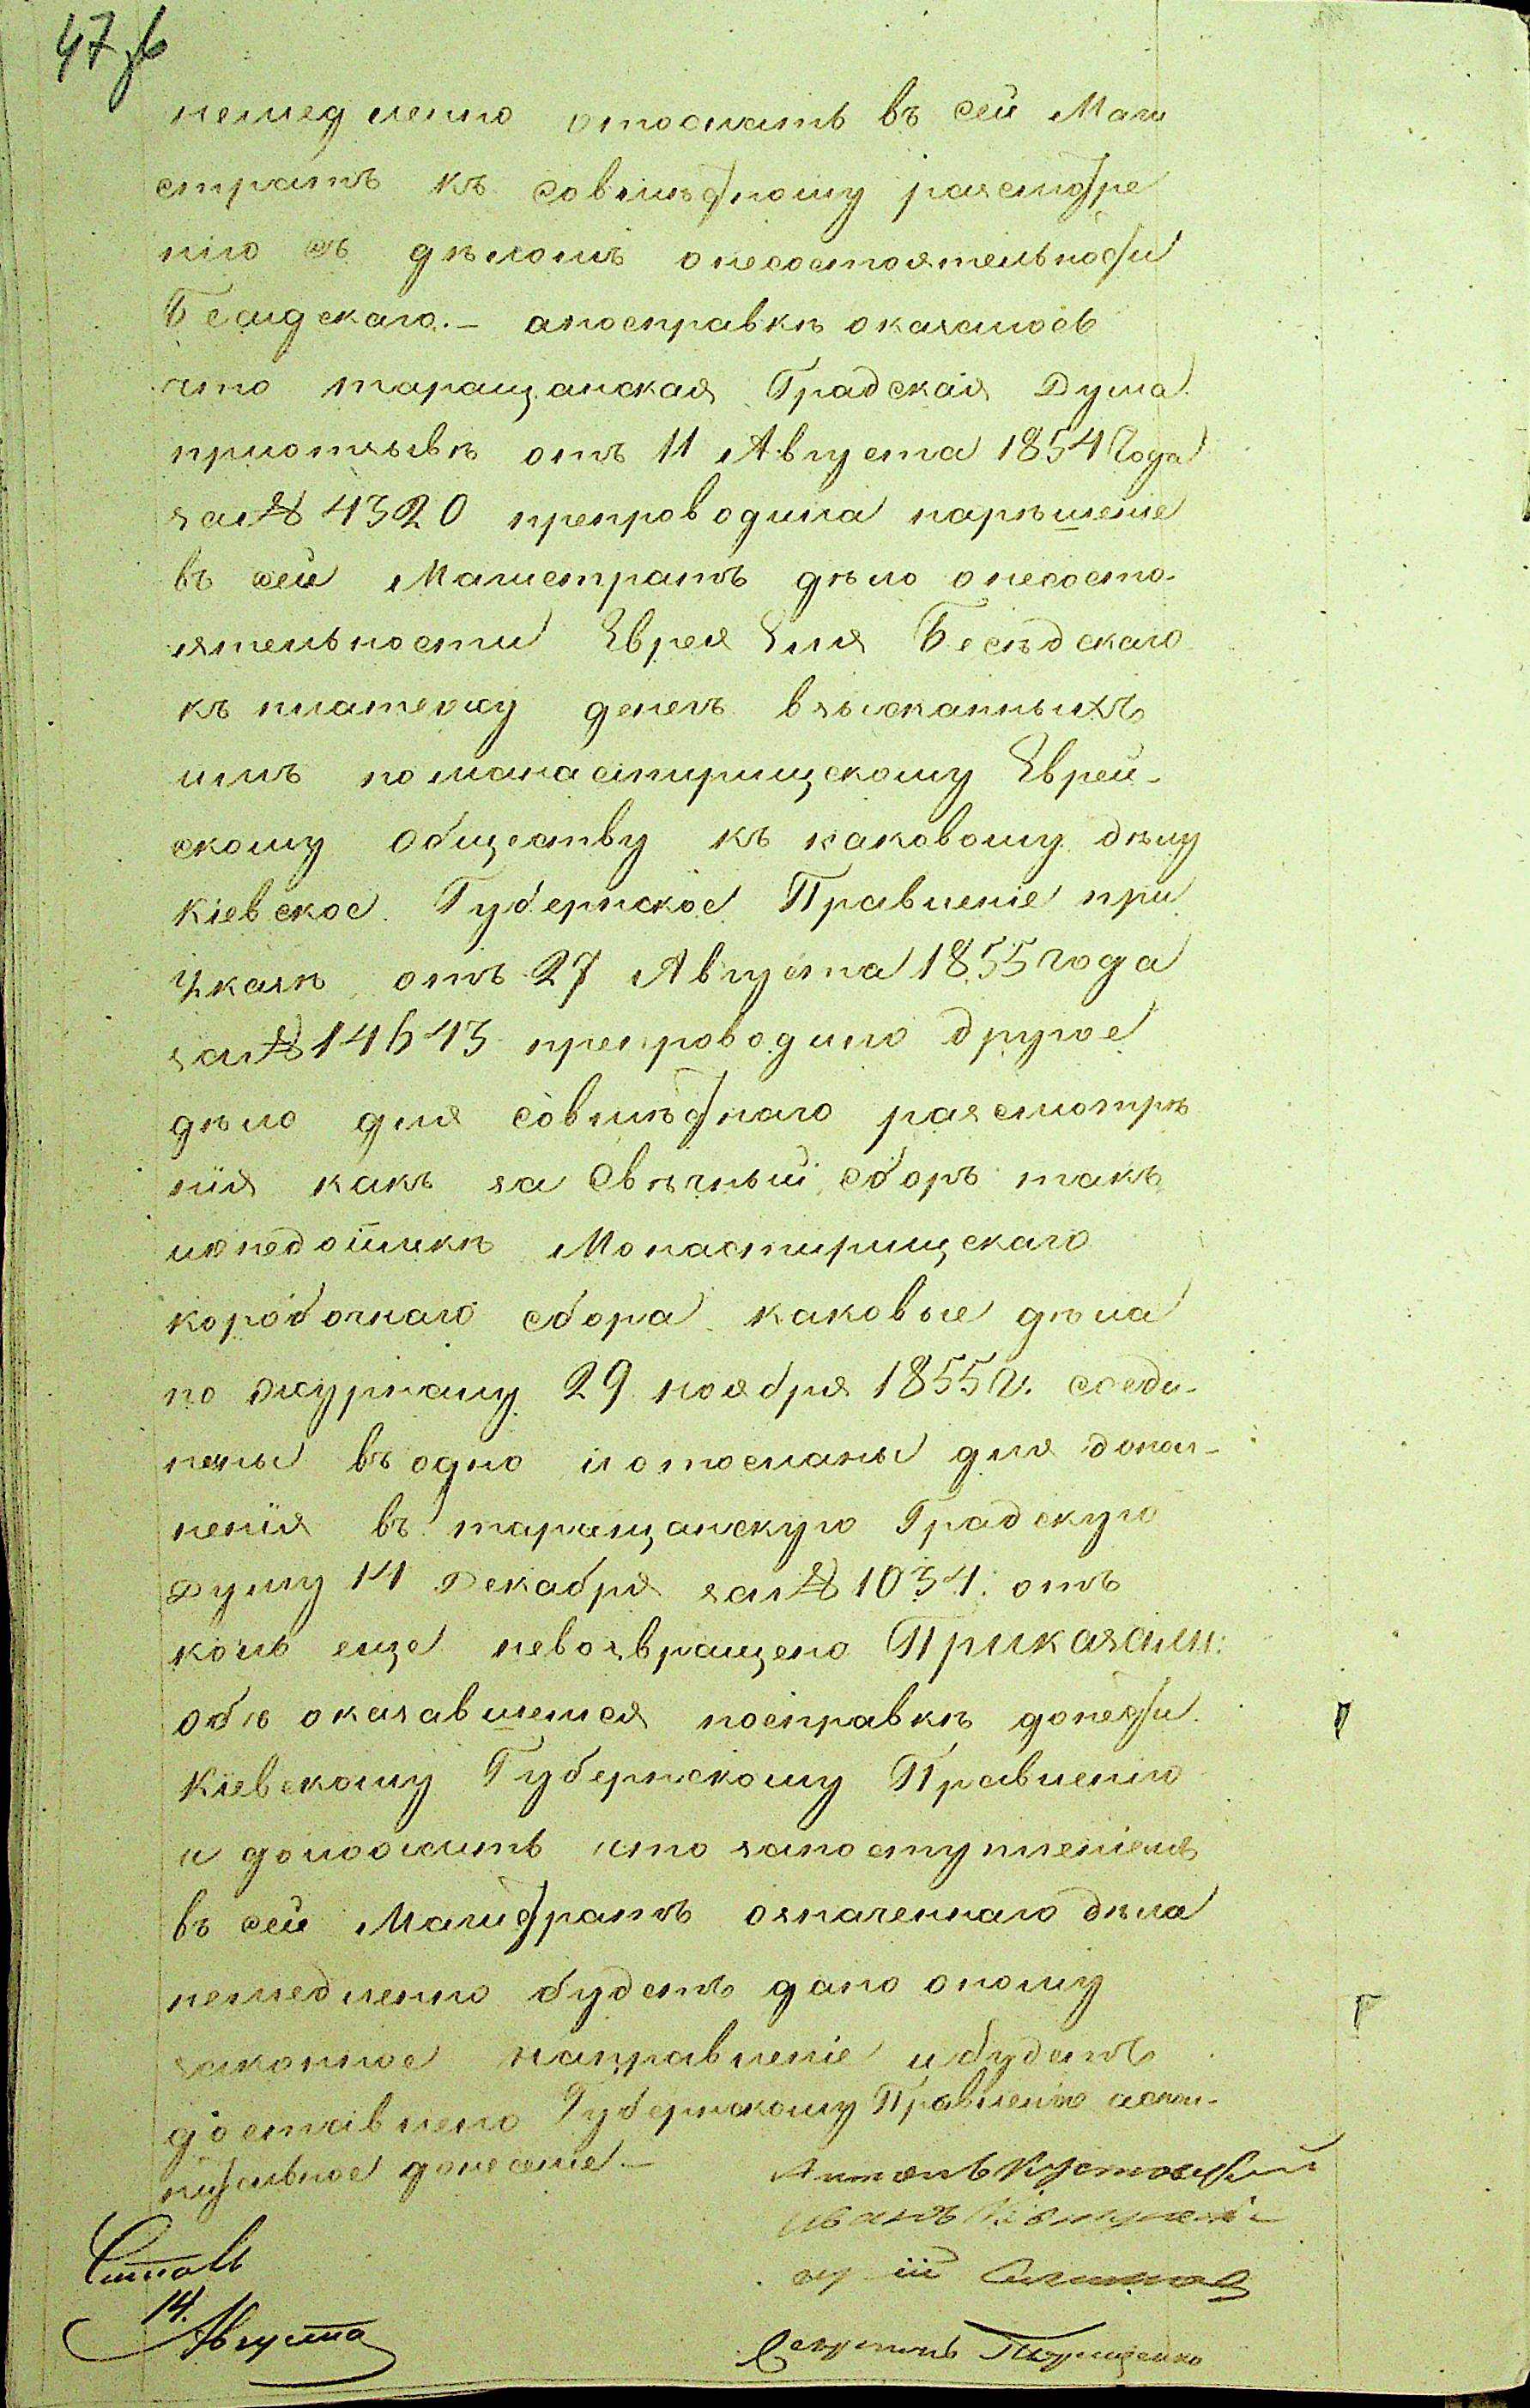 47 зв
немедленно отослать въ сей Маги
стратъ къ совмѣстному разсмотре
нію съ дѣломъ онесостоятельности
Бесидскаго. – апосправкѣ оказалось
что таращанская Градская Дума
приотзывѣ отъ 11 Августа 1854 Года
за№ 4320 препроводила нарѣшеніе
въ сей Магистратъ дѣло онесосто-
ятельности Еврея Еля Бесѣдскаго
къ платежу денегъ взысканныхъ
имъ поманастирищскому Еврей-
скому Обществу къ каковому дѣлу
Кіевское Губернское Правленіе при
Указѣ отъ 27 Августа 1855 года
за№ 14643 препроводило другое
дѣло для совмѣстнаго разсмотрѣ
нія какъ за Свѣчный сборъ такъ
ионедоимкѣ Монастирищскаго
коробочнаго сбора каковые дѣла
по журналу 29 ноября 1855 г. соеди-
нены въ одно иотосланы для допол-
ненія въ таращанскую Градскую
Думу 14 Декабря за№ 1034. отъ
коль еще невозвращено Приказали:
объ оказавшемся посправкѣ донести
Кіевскому Губернскому Правленію
и доложить что запоступленіемъ
въ сей Магистратъ означеннаго дѣла
немедленно будетъ дано оному
законное направленіе и будетъ
доставлено Губернскому Правленію
донесеніе –
Иванъ
14.
Августа
Секретарь